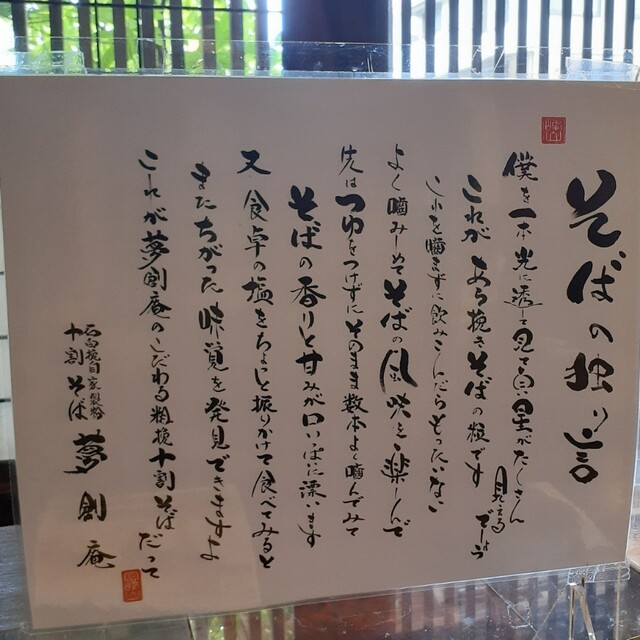 そばの独り言
僕を一本光に透して見て頂 星がたくさん
見えるでしょう
これがあら挽きそばの粒です
これを噛まずに飲みこんだらもったいない
よく噛みしめてそばの風味を楽しんで
先はつゆをつけずにそのまま数本よく噛んでみて
そばの香りと甘みが口いっぱいに漂います
又 食卓の塩をちょっと振りかけて食べてみると
またちがった味覚を発見できますよ
これが夢創庵のこだわる粗挽十割そばだって
石臼挽自家製粉
十割そば 夢創庵